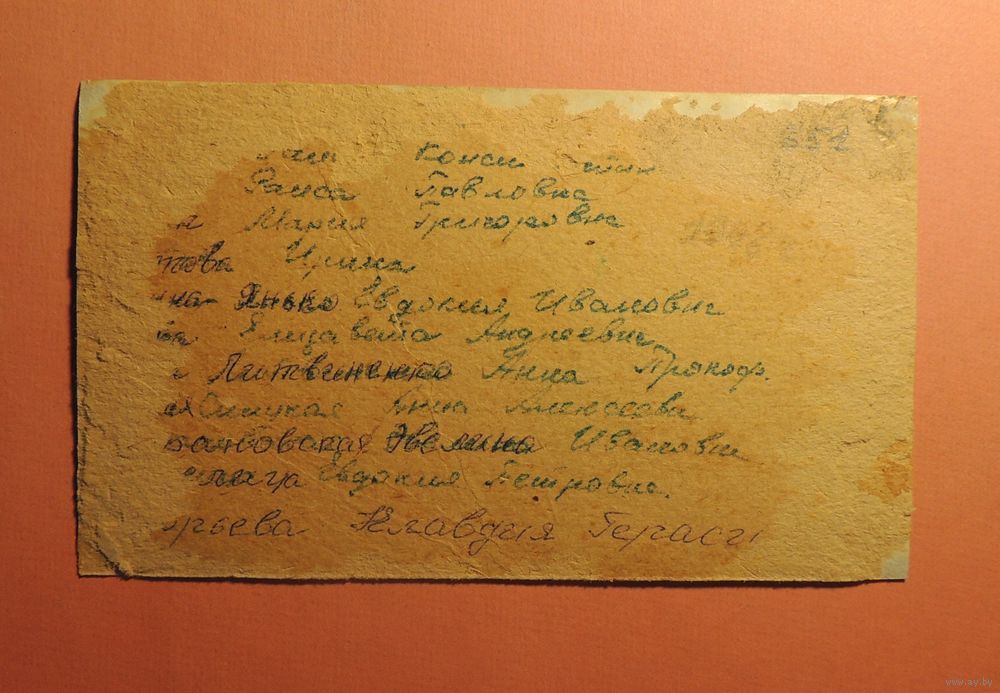 352
Раиса Павловна
Мария Григоровна
това Ирина
на Янько Евдокия Ивановн
ва Елизавета Андреевн
Литвиненко Анна Прокоф.
Анна Алексеева
Эвелина Ивановн
Евдокия Петровна.
рьева Клавдия Гераси
www.ay.by